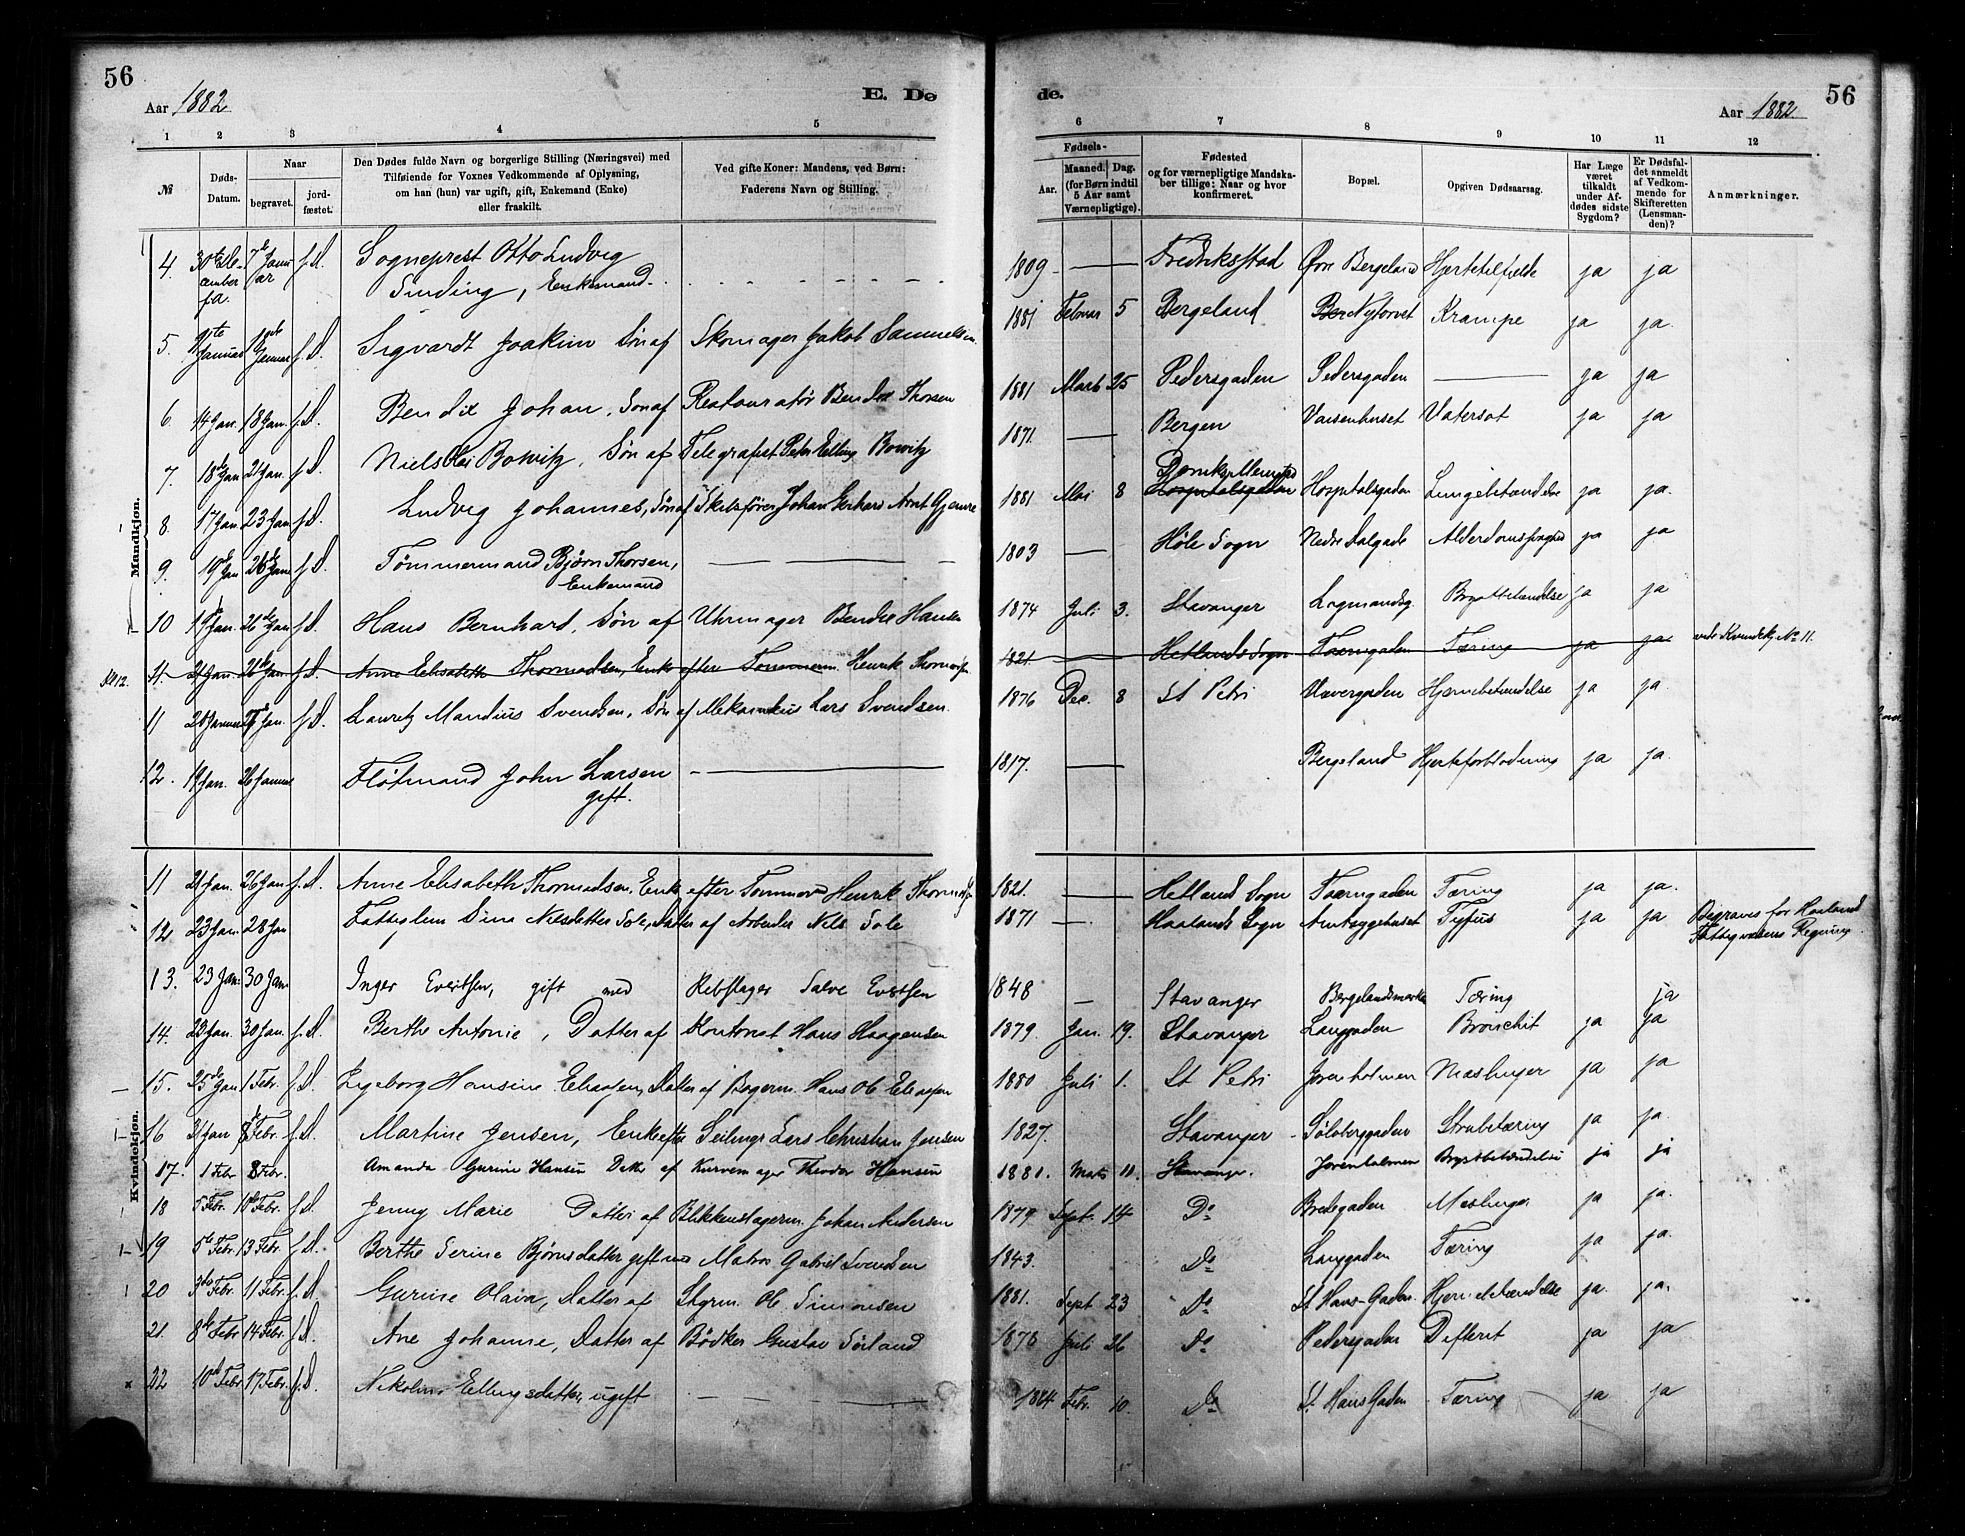 56
Aar 1882
E. Dø
1 2 3 4 5
№
Døds-Datum.
Naar
begravet.
jord-fæstet.
Den Dødes fulde Navn og borgerlige Stilling (Næringsvei) med
Tilføiende for Voxnes Vedkommende af Oplysning,
om han (hun) var ugift, gift, Enkemand (Enke)
eller fraskilt.
Ved gifte Koner: Mandens, ved Børn:
Faderens Navn og Stilling.
Mandkjøn.
4. 7de Januar f.A. Sogneprest Otto Ludvig
Sinding, Enkemand.
5. Januar f.A. Sigvardt Joakim Søn af Skomager Jakob Samuelsen
6. 14 Jan. 18 Jan. f.A. Bendix Johan, Søn af Restauratør Bendix Thorsen
7. 18de Jan 21 Jan. f.A. Niels Bowitz, Søn af Telegrafist Peter Elling Bowitz
8. 17 Jan. 23 Jan f.A. Ludvig Johannes, Søn af Skibsfører Johan Gerhard Arnt Gjemre
9. 19de Jan 26de Jan f.A. Tømmermand Bjørn Thorsen,
Enkemand
10 19 Jan. 26de Jan f.A. Hans Bernhard, Søn af Uhrmager Bendix Hansen
11. 21 Jan. 26de Jan. f.A. Anne Elisabeth Thormodsen, Enke efter Tømmerm. Henrik Thormodsen
11 Januar Jan. f.A. Lauretz Mandius Svendsen, Søn af Mekanikus Lars Svendsen.
12. 19 Jan. 26 Januar Fløtmand John Larsen
gift.
Kvindekjøn.
11 21 Jan. 26 Jan f.A. Anne Elisabeth Thormodsen, Enke efter Tømmerm Henrik Thormodsen
12 23 Jan. 28 Jan Fattiglem Sina Nilsdatter Sole, Datter af Arbeider Nils Sole
13. 23 Jan. 30 Jan. Inger Evertsen, gift med Rebslager Salve Evertsen
14. 23 Jan. 30 Jan. f.A. Berthe Antonie, Datter af Kontorist Hans Haagensen
15. 25de Jan 1 Febr. f.A. Ingeborg Hansine Eliasen, Datter af Bogerm. Hans Ol. Eliassen
16 31 Jan Febr. f.A. Martine Jensen, Enke efter Seilings Lars Christian Jensen
17. 1 Febr 8 Febr. Amanda Gurine Hansen Datter af Kurvemager Theodor Hansen
18 5 Febr. 10de Febr. f.A. Jenny Marie Datter af Blikkenslagerm. Johan Andersen
19 5te Febr. 13 Febr. f.A. Berthe Serine Bjørnsdatter gift med Matros Gabriel Svendsen
20 3die Febr. 11 Febr. f.A. Gurine Olava, Datter af Styrm. Ol. Simonsen
21. 8de Febr 14 Febr. f.A. Ane Johanne, Datter af Bødker Gustav Sørland
22 10de Febr 17 Febr. f.A. Nikoline Ellingsdatter, ugift
de.
56
Aar 1882
6 7 8 9 10 11 12
Fødsels-
Aar.
Maaned. Dag.
(for Børn indtil
5 Aar samt
Værnepligtige).
Fødested
og for værnepligtige Mandska-
ber tillige: Naar og hvor
konfirmeret.
Bopæl.
Opgiven Dødsaarsag.
Har Læge
været
tilkaldt
under Af-
dødes sidste
Sygdom?
Er Dødsfal-
det anmeldt
af Vedkom-
mende for
Skifteretten
(Lensman-
den)?
Anmærkninger.
1809 Fredriksstad Øvre Bergeland Hjertetilfælde ja ja
1881 Februar 5 Bergeland Nytorvet Krampe ja ja.
1881 Marts 25 Pedersgaden Pedersgaden ja ja
1871. Bergen Vaisenhuset Vatersot ja ja
1881 Mai 8 Hospitalsgaden Hospitalsgaden Lungebetændelse ja ja.
1803 Høle Sogn Nedre Dalgade ja ja
1874 Juli 3. Stavanger Lagmandsg. Brystbetændelse ja ja
1821. Hetlands Sogn Taarngaden Tæring ja ja vide Kvindekj. No 11.
1876 Dec. 8 St Petri Vævergaden Hjernebetændelse ja ja.
1817. Bergeland Hjerteforblødning ja ja.
1821. Hetland Sogn Taarngaden Tæring ja ja.
1871 Haalands Sogn Amtsygehuset Tyfus ja ja Begraves for Haaland
Fattigvæsens Regning.
1848 Stavanger Bergelandsmarken Tæring ja
1879. Jan. 19. Stavanger Langgaden Bronchit ja ja
1880 Juli 1. St Petri Jorenholmen Mæslinger ja ja
1827. Stavanger Sølvberggaden Strubetæring ja ja.
1881. Marts 11. Stavanger. Jorenholmen Brystbetændelse ja ja
1879 Sept. 14 Do Bredegaden Mæslinger ja ja.
1843. Do Langgaden Tæring ja ja.
1881. Sept 23 Do St Hans-Gaden. Hjernebetændelse ja. ja.
1878 Juli 26 Do Pedersgaden Difterit ja ja
Febr. 10. Do St. Hans Gaden Tæring ja ja